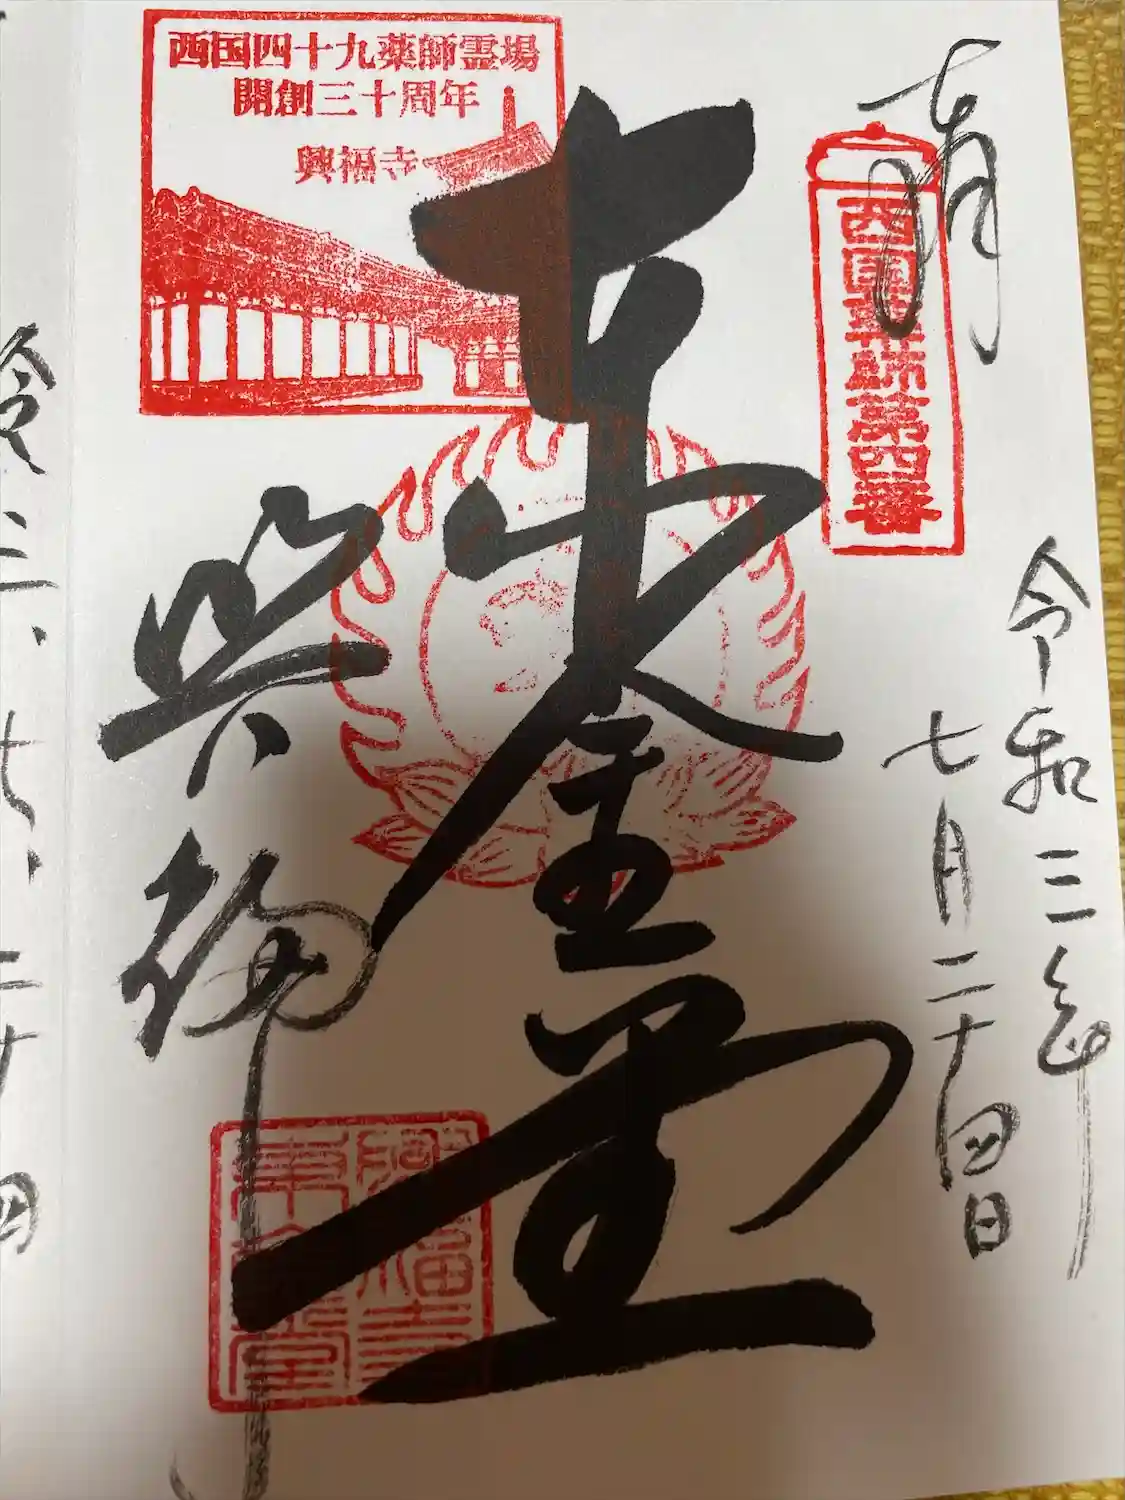 西国四十九薬師霊場
開創三十周年
興福寺
奉拝
西国薬師第四番
令和三年
七月二十四日
東金堂
興福寺
興福寺
東金堂
令三、七、二十四